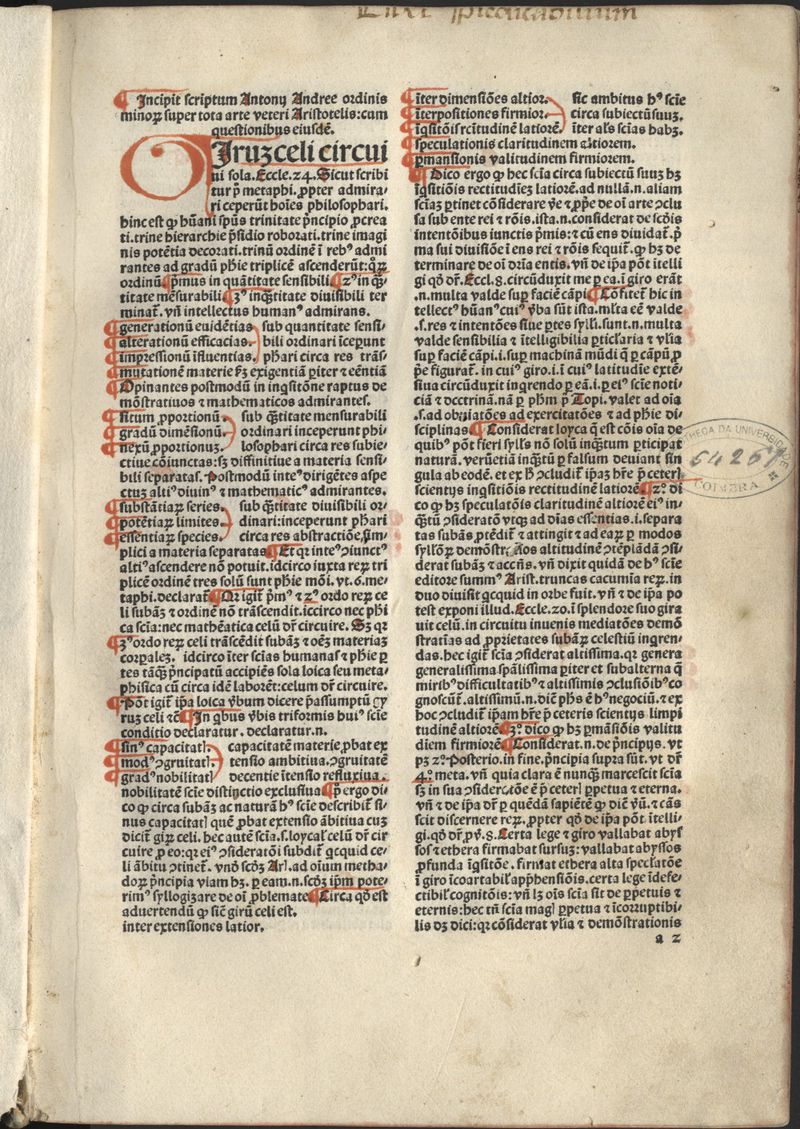 Incipit scriptum Antonij Andree ordinis
minoꝝ super tota arte veteri Aristotelis: cum
questionibus eiusdē.
Jruꝫ celi circui
ui sola. Eccle. 24. Sicut scribi
tur p̄ metaphi. ꝓpter admira/
ri ceperūt hoīes philosophari.
hinc est ꝙ hūani spūs trinitate p̄ncipio ꝓcrea
ti. trine hierarchie p̄sidio roborati. trine imagi
nis potētia decorati. trinū ordinē ī rebꝰ admi
rantes ad gradū phīe triplicē ascenderūt: qꝝ
ordinū pͥmus in quātitate sensibili 2ꝰ in q̄ꝫ
titate mēsurabili 3ꝰ inq̄ꝫtitate diuisibili ter
minaͭ. vñ intellectus humanꝰ admirans.
generationū euidētias sub quantitate sensi/
alterationū efficacias. bili ordinari īceperunt
impressionū īfluentias. phari circa res trās/
mutatiōne materie ẜꝫ exigentiā ꝑiter ⁊ eēntiā
Opinantes postmodū in inq̄sitōne raptus de
mōstratiuos ⁊ mathematicos admirantes.
situm ꝓportionū. sub q̄ꝫtitate mensurabili
gradū dimēsionū. ordinari inceperunt phi/
nexū ꝓportionuꝫ. losophari circa res subie/
ctiue cōiunctas: sꝫ diffinitiue a materia sensi/
bili separatas. Postmodū inteꝰ dirigētes aspe
ctuꝫ altiꝰ diuinꝰ ⁊ mathematicꝰ admirantes.
substātiaꝝ series. sub q̄ꝫtitate diuisibili or/
potētiaꝝ limites. dinari: inceperunt phari
essentiaꝝ species. circa res abstractiōe, sim/
plici a materia separatas Et qꝛ inteꝰ ↄiunctꝰ
altiꝰ ascendere nō potuit. idcirco iuxta reꝝ tri
plicē ordinē tres solū sunt phīe mōi. vt. 6. me/
taphi. declaraͭ Qꝛ igiͭ pͥmꝰ ⁊ 2ꝰ ordo reꝝ ce
li subāꝫ ⁊ ordinē nō trāscendit. iccirco nec phi
ca scīa: nec mathēatica celū dꝛ circuire. Sꝫ qꝛ
3ꝰ ordo reꝝ celi trāscēdit subāꝫ ⁊ oēꝫ materiaꝫ
corꝑaleꝫ. idcirco īter scīas humanas ⁊ phīe ꝑ
tes tāq̄ꝫ pͥncipatū accipiēs sola loica seu meta/
phisica cū circa idē laborēt: celum dꝛ circuire.
Pōt igiͭ ip̄a loica ꝟbum dicere p̄assumptū Cy
ruꝫ celi ⁊c̄ In qbus ꝟbis triformis huiꝰ scīe
conditio declaratur. declaratur. n.
sinꝰ capacitatꝭ. capacitatē materie ꝓbat ex
modꝰ ↄgruitatꝭ. tensio ambitiua. ↄgruitatē
gradꝰ nobilitatꝭ decentie ītensio refluxiua.
nobilitatē scīe distinctio exclusiua p̄ ergo di/
co ꝙ circa subāꝫ ac naturā hꝰ scīe describiͭ si/
nus capacitatꝭ quē ꝓbat extensio ābitiua cuꝫ
diciͭ girꝝ celi. hec autē scīa. s. loycaꝉ celū dꝛ cir
cuire ꝓ eo: qꝛ eiꝰ ↄsideratōi subdiͭ qcquid ce/
li ābitu ↄtineͭ. vnō scōꝫ Arꝉ. ad oīum metha/
doꝝ pͥncipia viam hꝫ. ꝑ eam. n. scōꝫ ip̄m pote/
rimꝰ syllogizare de oī ꝓblemate Circa qđ est
aduertendū ꝙ sicē girū celi est.
inter extensiones latior.
īter dimensiōes altior. sic ambitus hꝰ scīe
īterpositiones firmior. circa subiectū suuꝫ.
īqsitōīs rcītudinē latiorē. īter al's scīas habꝫ.
speculationis claritudinem altiorem.
ꝑmansionis valitudinem firmiorem.
Dico ergo ꝙ hec scīa circa subiectū suuꝫ hꝫ
īqsitiōis rectitudīeꝫ latiorē. ad nullā. n. aliam
scīaꝫ ꝑtinet cōsiderare ꝟe ⁊ ꝓpe de oī arte ↄclu
sa sub ente rei ⁊ rōis. ista. n. considerat de scōis
intentōibus iunctis pͥmis: ⁊ cū ens diuidaͭ. pͥ
ma sui diuisiōe ī ens rei ⁊ rōis sequiͭ. ꝙ hꝫ de
terminare de oī dr̄ia entis. vñ de ip̄a pōt ītelli
gi qđ dꝛ. Eccl. 8. circūduxit me ꝑ ea. ī giro erāt
. n. multa valde suꝑ faciē cāpi Cōfiteͭ hic in
tellectꝰ hūanꝰ cuiꝰ ꝟba sūt ista. mꝉta eē valde
. s. res ⁊ intentōes siue ꝑtes sylꝉi. sunt. n. multa
valde sensibilia ⁊ ītelligibilia ꝑticꝉaria ⁊ vꝉia
suꝑ faciē cāpi. i. suꝑ machinā mūdi q̄ ꝑ cāpū ꝓ
pe figuraͭ. in cuiꝰ giro. i. ī cuiꝰ latitudīe extē/
siua circūduxit ingrendo ꝑ eā. i. ꝑ eiꝰ scīe noti/
ciā ⁊ doctrinā. nā ꝑ phm ꝑ Topi. valet ad oīa
. s. ad obuiatōes ad exercitatōes ⁊ ad phīe di/
sciplinas Considerat loyca q̄ est cōis oīa de
quibꝰ pōt fieri sylꝉs nō solū inq̄ꝫtum ꝑticipat
naturā. verūetiā inq̄ꝫtū ꝑ falsum deuiant sin
gula ab eodē. et ex hͦ ↄcludiͭ ip̄aꝫ hr̄e p̄ ceterꝭ
scientijs inqsitiōis rectitudinē latiorē 2ͦ. di
co ꝙ hꝫ speculatōis claritudinē altiorē eiꝰ in/
q̄ꝫtū ↄsideratō vtqꝫ ad dīas essentias. i. separa
tas subās ꝓtēdiͭ ⁊ attingit ⁊ ad eaꝝ ꝑ modos
sylꝉoꝝ demōstr̄atiōos altitudinē ↄtēplādā ↄsi/
derat subāꝫ ⁊ accn̄s. vñ dixit quidā de hꝰ scīe
editore summꝰ Arist. truncas cacumīa reꝝ. in
duo diuisit qcquid in orbe fuit. vñ ⁊ de ip̄a po
test exponi illud. Eccle. 20. ī splendore suo gira
uit celū. in circuitu inuenis mediatōes demō
stratīas ad ꝓprietates subāꝝ celestiū ingren/
das. hec igiͭ scīa ↄsiderat altissima. qꝛ genera
generalissima. sp̄alissima ꝑiter et subalterna q̄
mirisbꝰ difficultatibꝰ ⁊ altissimis ↄclusiōibꝰ co
gnoscūͭ. altissimū. n. diē phs ē hꝰ negociū. ⁊ ex
hoc ↄcludiͭ ip̄am hr̄e p̄ ceteris scientijs limpi
tudinē altiorē 3ͦ. dico ꝙ hꝫ ꝑmāsiōis valitu
diem firmiorē Considerat. n. de pͥncipijs. vt
pꝫ 2ͦ. Posterio. in fine. pͥncipia supra sūt. vt dꝛ
4ͦ. meta. vñ quia clara ē nunq̄ꝫ marcescit scīa
sꝫ in sua ↄsideratōe ē p̄ ceterꝭ ꝑpetua ⁊ eterna.
vñ ⁊ de ip̄a dꝛ ꝑ quēdā sapiētē ꝙ diē vū. ⁊ cās
scit discernere reꝝ. ꝓpter qđ de ip̄a pōt ītelli/
gi. qđ dꝛ ꝓv. 8. Certa lege ⁊ giro vallabat abys
sos ⁊ ethera firmabat sursuꝫ: vallabat abyssos
ꝓfunda īqsitōe. firmat ethera alta specꝉatōe
ī giro īcoartabilꝭ app̄hensiōis. certa lege īdefe/
ctibilꝭ cognitōis: vñ lꝫ oīs scīa sit de ꝑpetuis ⁊
eternis: hec tn̄ scīa magꝭ ꝑpetua ⁊ īcorruptibi/
lis dꝫ dici: qꝛ cōsiderat vꝉia ⁊ demōstrationis
a 2
54267
COIMBRA